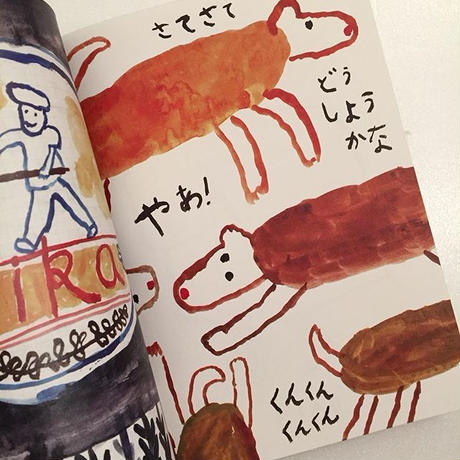 さてさて
どう
しよう
かな
やあ!
くんくん
くんくん
ika